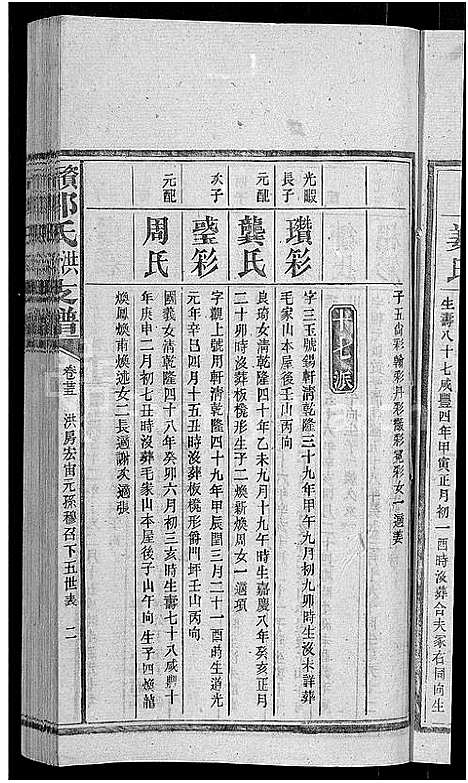 姜氏
生壽八十七咸豐四年甲寅正月初一酉時沒葬合夫冢右同向生
子五尙彩翰彩丹彩徽彩冕彩女一適姜
十七派
光暇
長子
瓚彩
字三玉號錫軒清乾隆三十九年甲午九月初九卯時生沒未詳葬
毛家山本屋後壬山丙向
元配
龔氏
良琦女清乾隆四十年乙未九月十九午時生嘉慶八年癸亥正月
二十卯時沒葬板櫈形生子二煥新煥周女一適項
次子
瑬彩
字觀上號用軒清乾隆四十九年甲辰閏三月二十一酉時生道光
元年辛巳四月十五丑時沒葬板櫈形爵門坪壬山丙向
元配
周氏
國義女清乾隆四十八年癸卯六月初三亥時生壽七十八咸豐十
年庚申二月初七丑時沒葬毛家山本屋後子山午向生子四煥喆
煥鳳煥甫煥述女二長適謝次適張
鄧氏洪支譜
卷三 洪房宏宙元孫穆召下五世表 二